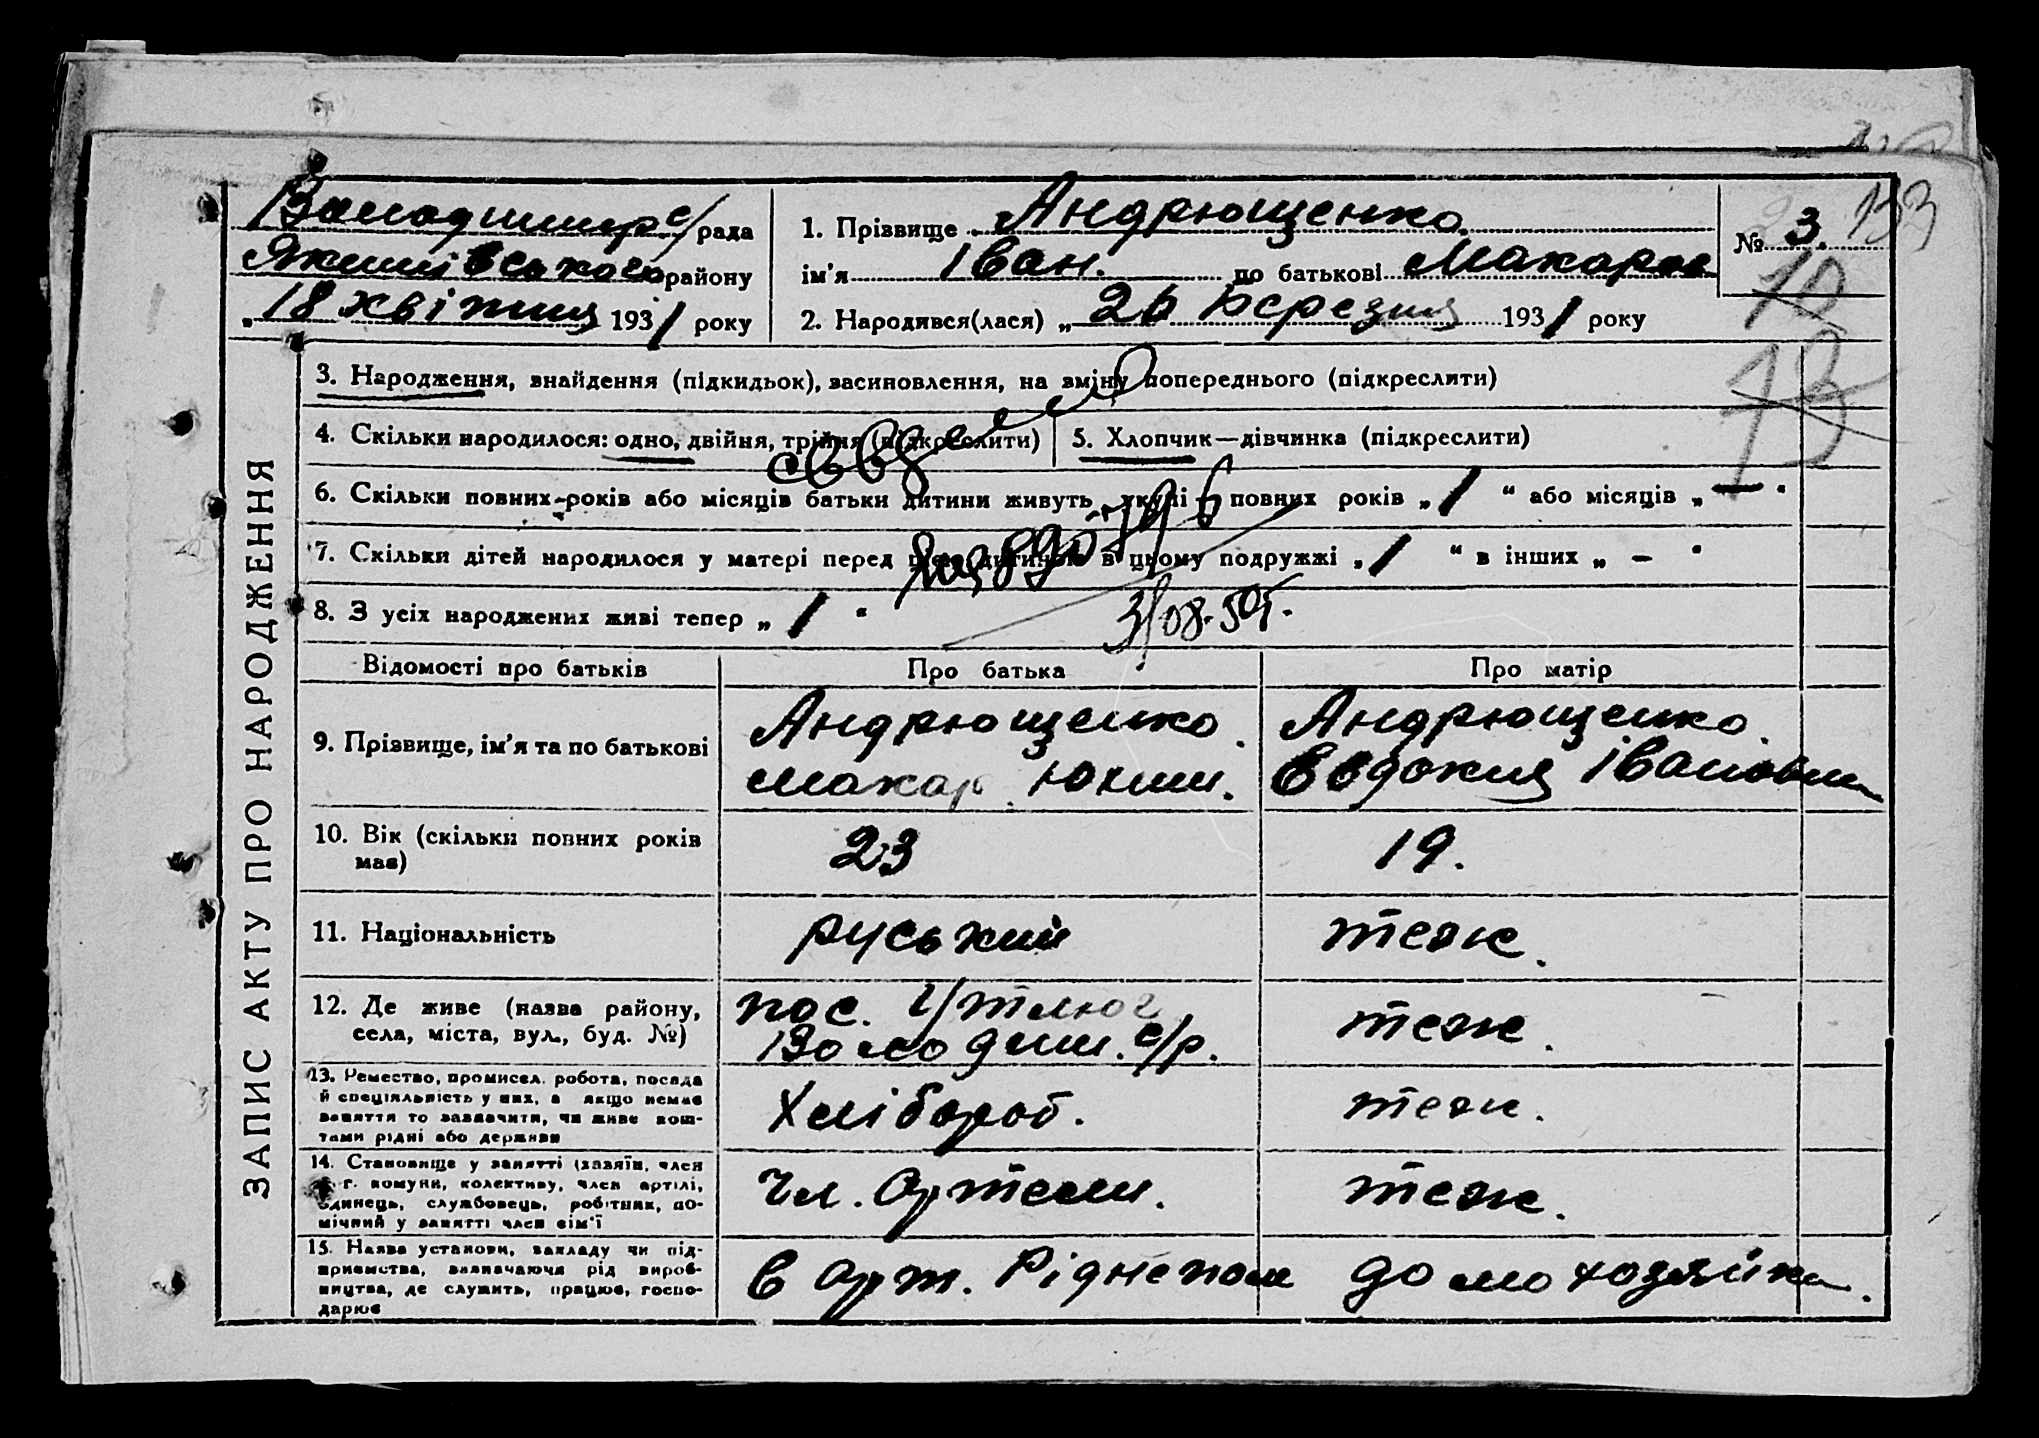 Володимир с/рада
Якимівського району
„18 квітня 1931 року
1. Прізвище Андрющенко
ім'я Іван. по батькові Макаров
2. Народився(лася) „ 26 Березня 1931 року
№ 3. 133
10
13
ЗАПИС АКТУ ПРО НАРОДЖЕННЯ
3. Народження, знайдення (підкидьок), засиновлення, на зміну попереднього (підкреслити)
4. Скільки народилося: одно, двійня, трійня (підкреслити)
5. Хлопчик—дівчинка (підкреслити)
6. Скільки повних років або місяців батьки дитини живуть укупі повних років „ 1 “ або місяців „ — “
7. Скільки дітей народилося у матері перед цією дитиною в цьому подружжі „ 1 “ в інших „ – “
8. З усіх народжених живі тепер „ 1 “
Відомості про батьків Про батька Про матір
9. Прізвище, ім'я та по батькові
Андрющенко.
Макар Юхим.
Андрющенко.
Евдокия Івановн
10. Вік (скільки повних років має)
23
19.
11. Національність
руський
теж.
12. Де живе (назва району,
села, міста, вул., буд. №)
пос. Утлюг
Володим. с/р.
теж.
13. Ремество, промисел, робота, посада
й спеціяльність у них, а якщо немає
заняття то зазначити, чи живе кош-
тами рідні або держави
Хлібороб.
теж.
14. Становище у занятті (хазяїн, член
с. г. комуни, колективу, член артілі,
одинець, службовець, робітник, по-
мічний у занятті член сім'ї
Чл. Артели.
теж.
15. Назва установи, закладу чи під-
приємства, зазначаючи рід вироб-
ництва, де служить, працює, госпо-
дарює
в арт. Рідне поле
домохозяйка.